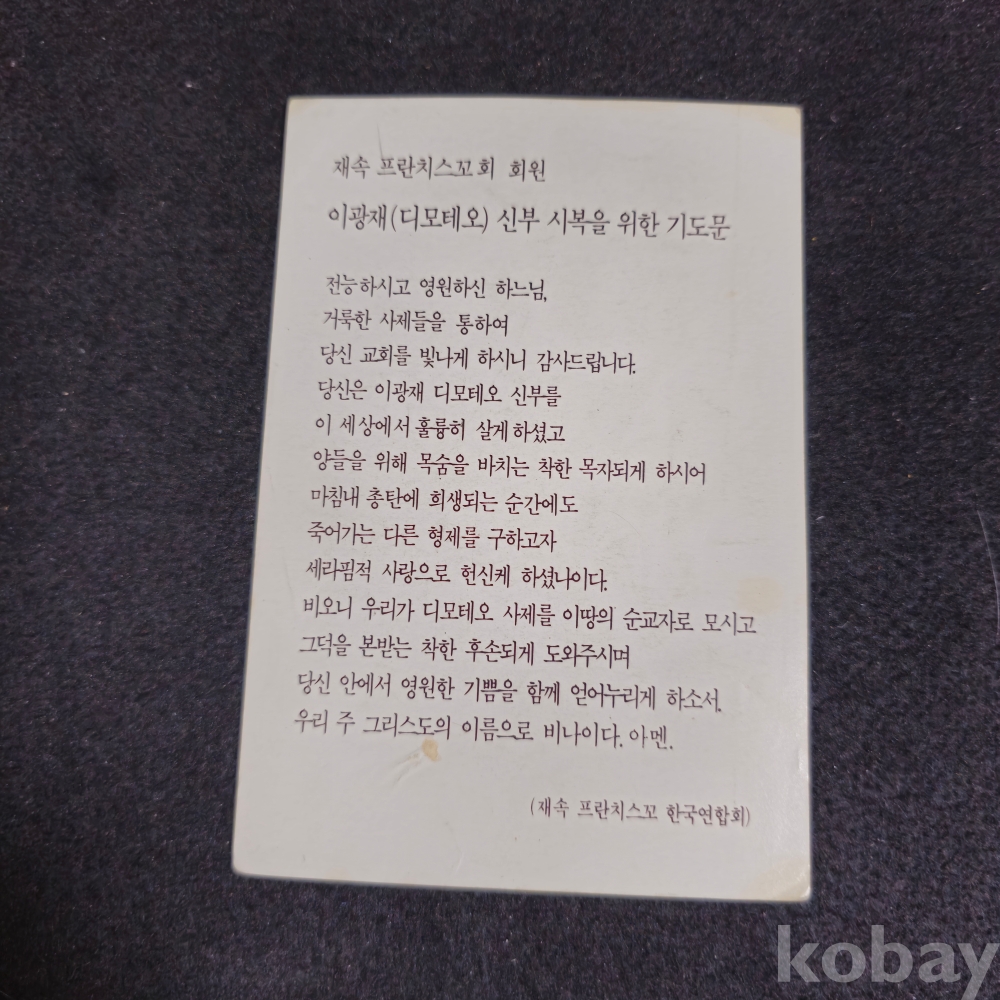 재속 프란치스꼬회 회원
이광재(디모테오) 신부 시복을 위한 기도문
전능하시고 영원하신 하느님,
거룩한 사제들을 통하여
당신 교회를 빛나게 하시니 감사드립니다.
당신은 이광재 디모테오 신부를
이 세상에서 훌륭히 살게 하셨고
양들을 위해 목숨을 바치는 착한 목자되게 하시어
마침내 총탄에 희생되는 순간에도
죽어가는 다른 형제를 구하고자
세라핌적 사랑으로 헌신케 하셨나이다.
비오니 우리가 디모테오 사제를 이땅의 순교자로 모시고
그덕을 본받는 착한 후손되게 도와주시며
당신 안에서 영원한 기쁨을 함께 얻어누리게 하소서.
우리 주 그리스도의 이름으로 비나이다. 아멘.
(재속 프란치스꼬 한국연합회)
kobay